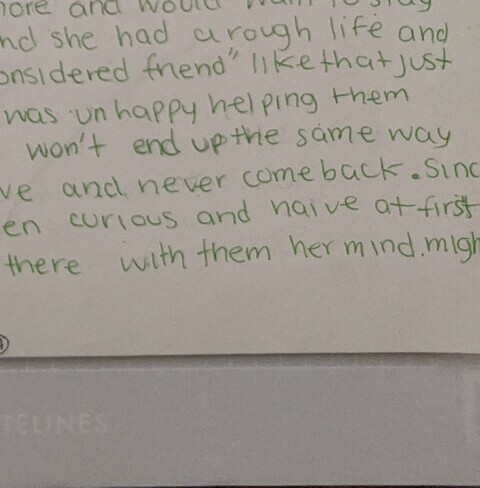 more and would want to stay
nd she had a rough life and
onsidered friend" like that just
was unhappy helping them
won't end up the same way
ve and never come back. Sinc
en curious and naive at first
there with them her mind migh
TELINES